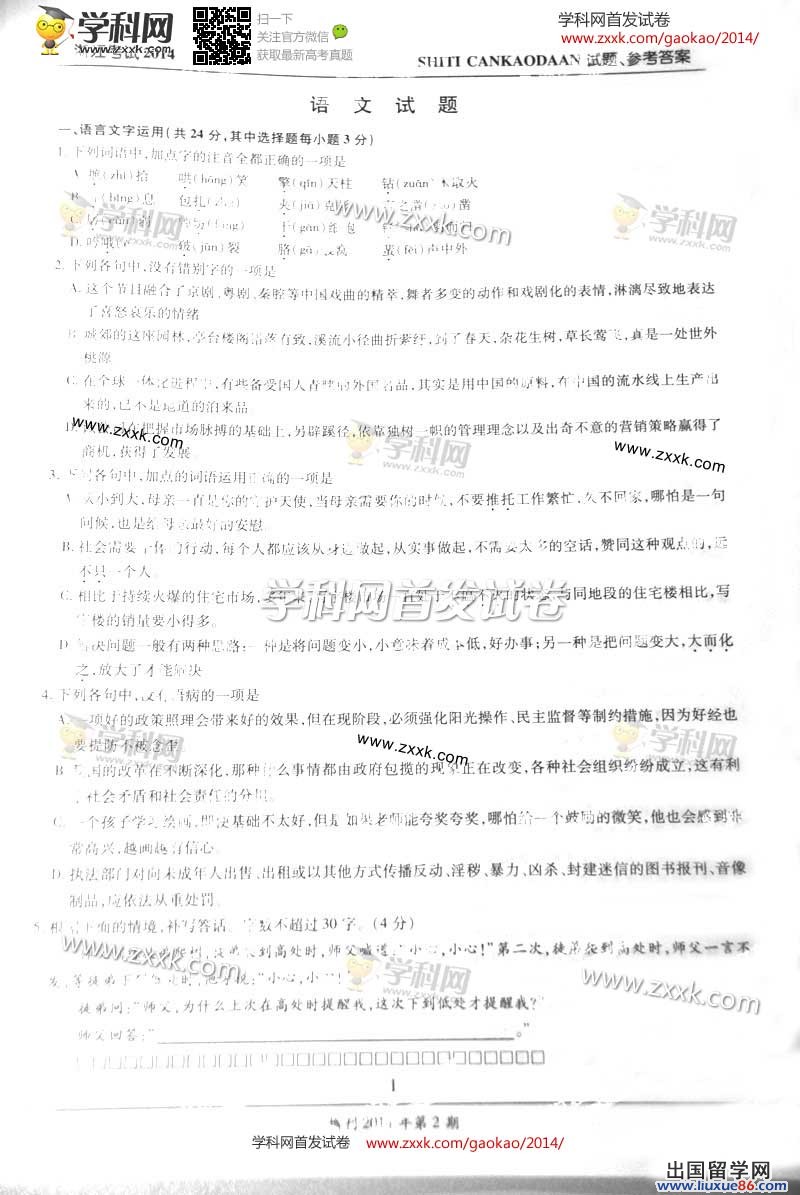 学科网
www.zxxk.com
扫一下
关注官方微信
获取最新高考真题
学科网首发试卷
www.zxxk.com/gaokao/2014/
浙江考试2014
SHITI CANKAODAAN 试题、参考答案
语文试题
一、语言文字运用(共24分,其中选择题每小题3分)
1.下列词语中,加点字的注音全都正确的一项是
A. (zhí)拾 哄(hōng)笑 擎(qín)天柱 钻(zuān)木取火
B. (bǐng)息 包扎 夹(jiā) 凿
C. 
D. 吟哦 皲(jūn)裂 胳(gā) 蜚(fēi)声中外
2.下列各句中,没有错别字的一项是
A.这个节目融合了京剧、粤剧、秦腔等中国戏曲的精萃,舞者多变的动作和戏剧化的表情,淋漓尽致地表达
了喜怒哀乐的情绪
B.城郊的这座园林,亭台楼阁错落有致,溪流小径曲折萦纡,到了春天,杂花生树,草长莺飞,真是一处世外
桃源
C.在全球一体化进程中,有些备受国人青睐的外国名品,其实是用中国的原料,在中国的流水线上生产出
来的,已不是地道的泊来品
D. 在把握市场脉搏的基础上,另辟蹊径,依靠独树一帜的管理理念以及出奇不意的营销策略赢得了
商机,获得了发展。
3.下列各句中,加点的词语运用正确的一项是
A.从小到大,母亲一直是你的守护天使,当母亲需要你的时候,不要推托工作繁忙,久不回家,哪怕是一句
问候,也是给母亲最好的安慰。
B.社会需要 的行动,每个人都应该从身边做起,从实事做起,不需要太多的空话,赞同这种观点的,远
不只一个人。
C.相比于持续火爆的住宅市场, 与同地段的住宅楼相比,写
字楼的销量要小得多。
D.解决问题一般有两种思路:一种是将问题变小,小意味着成本低,好办事;另一种是把问题变大,大而化
之,放大了才能解决
4.下列各句中,没有语病的一项是
A.一项好的政策照理会带来好的效果,但在现阶段,必须强化阳光操作、民主监督等制约措施,因为好经也
要提防不被念歪
B.我国的改革在不断深化,那种什么事情都由政府包揽的现象正在改变,各种社会组织纷纷成立,这有利
于社会矛盾和社会责任的分担。
C.一个孩子学习绘画,即使基础不太好,但是如果老师能夸奖夸奖,哪怕给一个鼓励的微笑,他也会感到非
常高兴,越画越有信心。
D.执法部门对向未成年人出售、出租或以其他方式传播反动、淫秽、暴力、凶杀、封建迷信的图书报刊、音像
制品,应依法从重处罚。
5.根据下面的情境,补写答话。字数不超过30字。(4分)
徒弟爬到高处时,师父喊道:“小心,小心!”第二次,徒弟爬到高处时,师父一言不
发,等徒弟下 时,他才说:“小心,小心!”
徒弟问:“师父,为什么上次在高处时提醒我,这次下到低处才提醒我?”
师父回答:“ 。”
1
增刊2014年第2期
学科网首发试卷
www.zxxk.com/gaokao/2014/
出国留学网
www.liuxue86.com